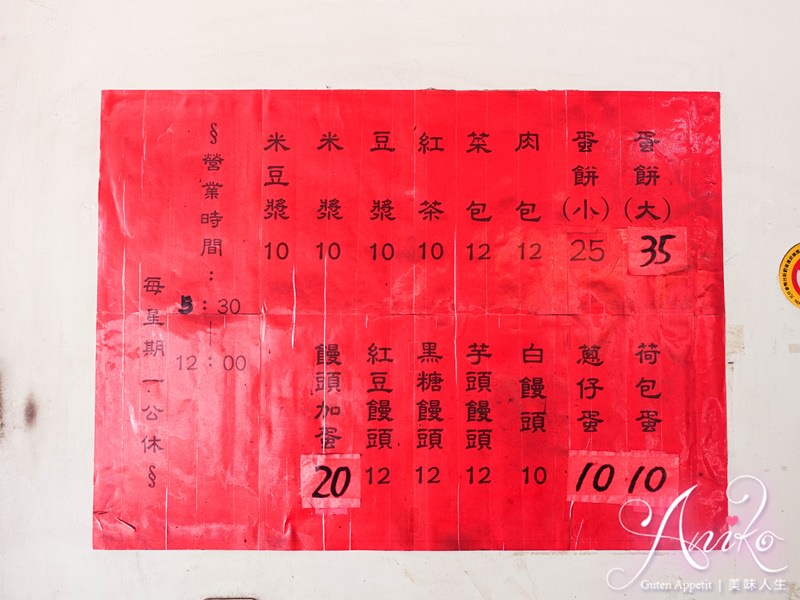 蛋餅(大) 35
蛋餅(小) 25
肉包 12
菜包 12
紅茶 10
豆漿 10
米漿 10
米豆漿 10
荷包蛋 10
蔥仔蛋 10
白饅頭 10
芋頭饅頭 12
黑糖饅頭 12
紅豆饅頭 12
饅頭加蛋 20
§營業時間：
5：30
|
12：00
每星期一公休§
Aniko
Guten Appetit | 美味人生